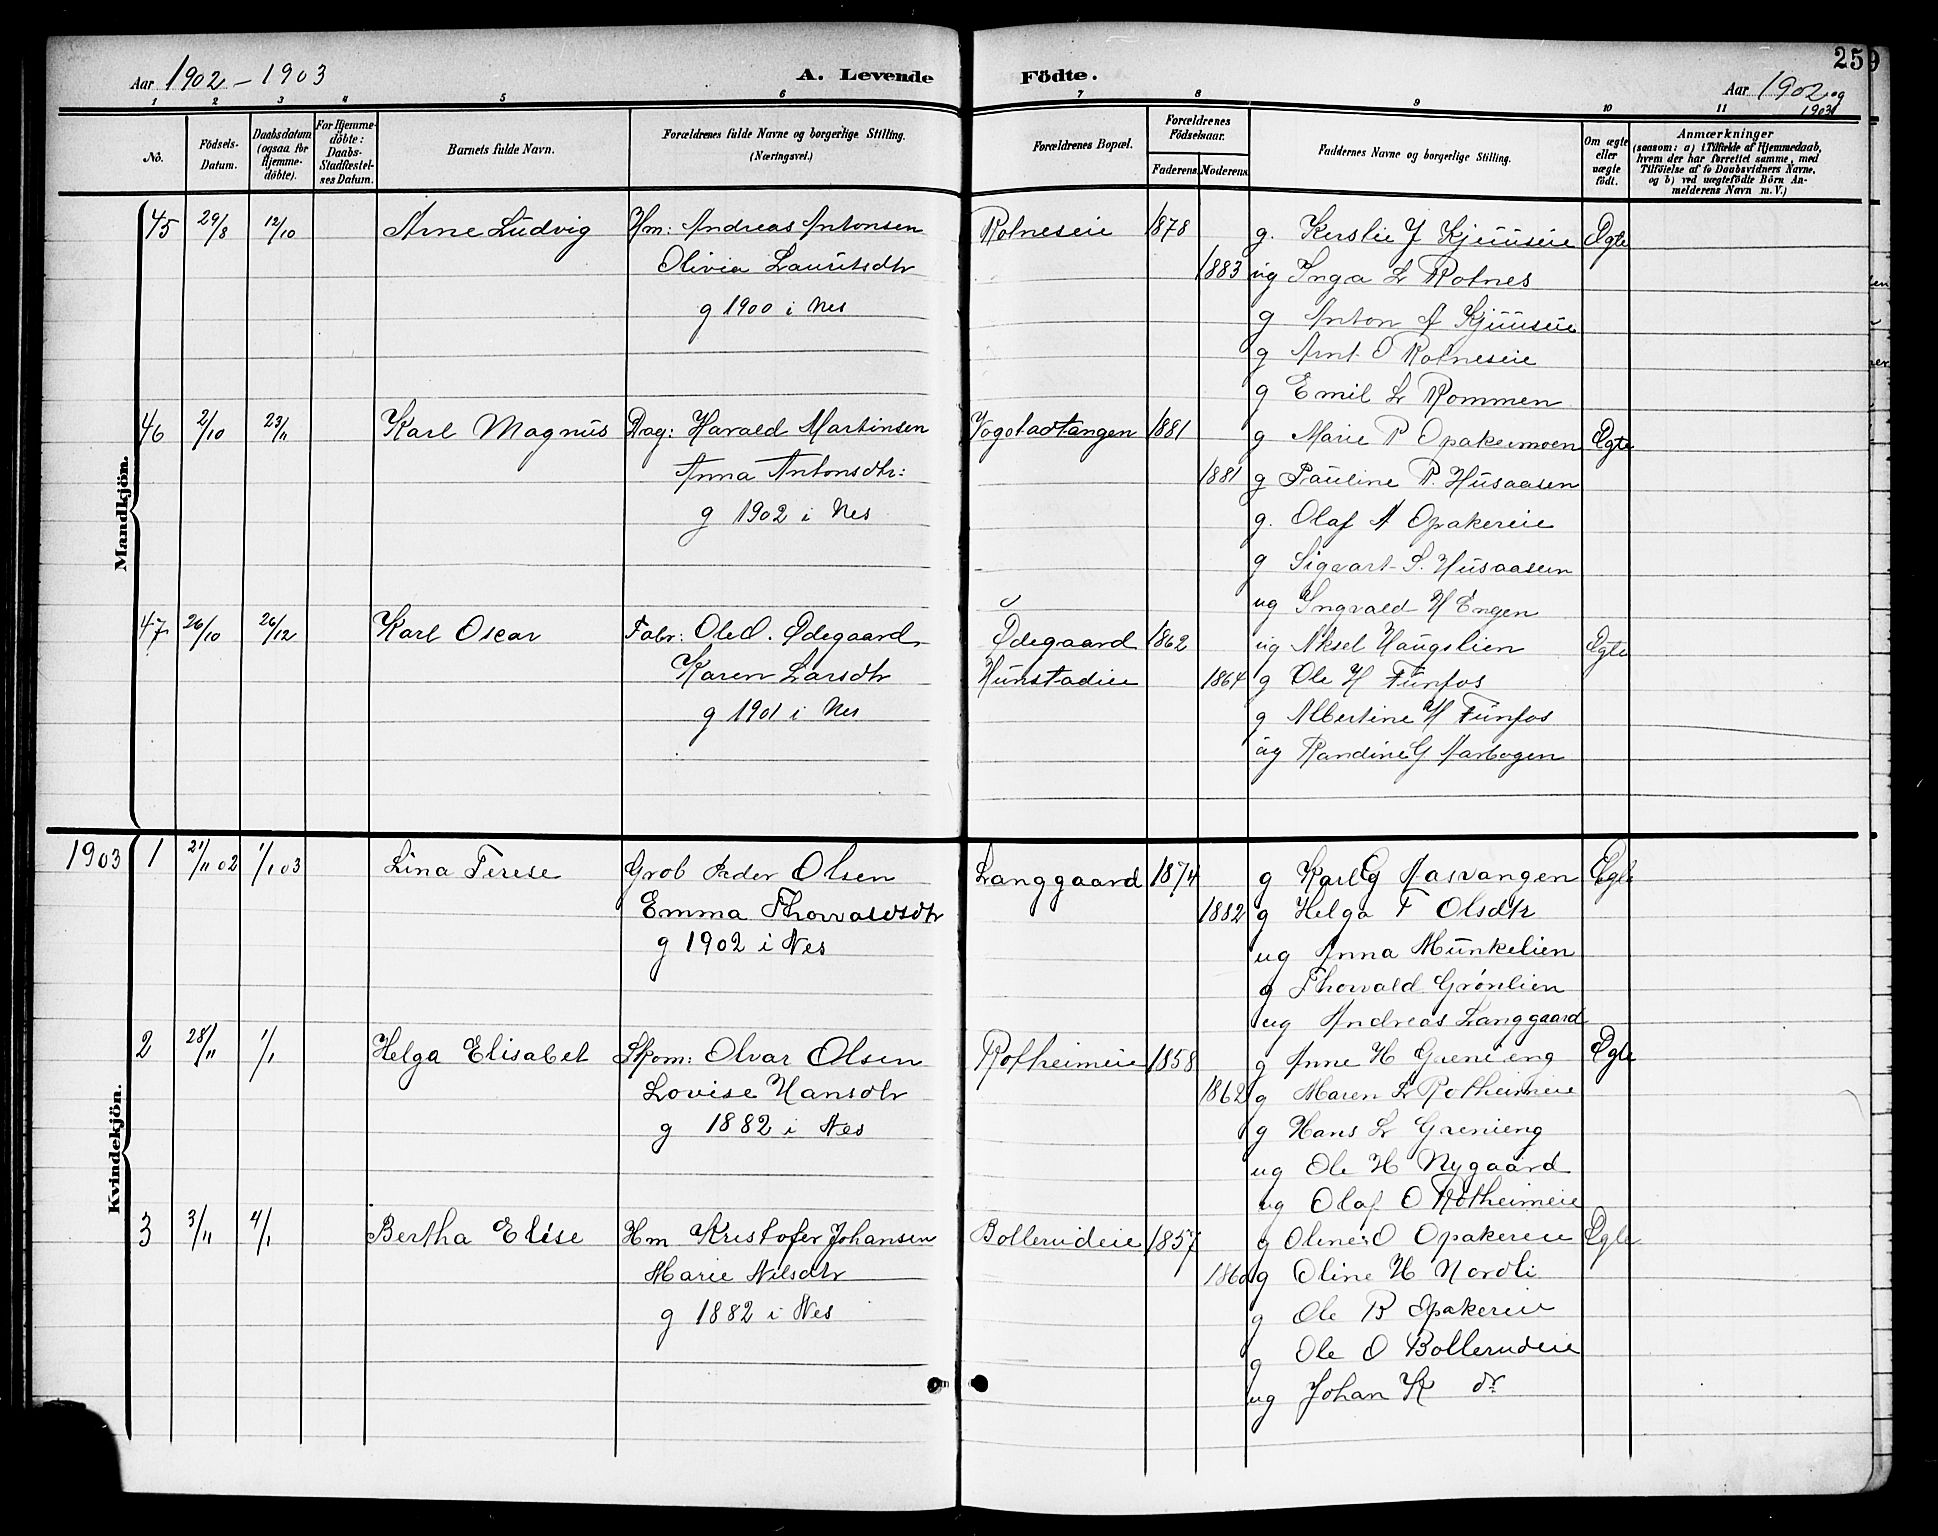 259
Aar 1902 - 1903
A. Levende Födte.
Aar 1902 og 1903
1 2 3 4 5 6 7 8 9 10 11
No.
Födsels-Datum.
Daabsdatum (ogsaa for Hjemme-döbte).
For Hjemme-döbte: Daabs-Stadfæstel-ses Datum.
Barnets fulde Navn.
Forældrenes fulde Navne og borgerlige Stilling. (Næringsvei.)
Forældrenes Bopæl.
Forældrenes Födselsaar.
Faderens Moderens
Faddernes Navne og borgerlige Stilling.
Om ægte eller uægte födt.
Anmærkninger
(saasom: a) i Tilfælde af Hjemmedaab,
hvem der har forrettet samme, med
Tilföielse af to Daabsvidners Navne,
og b) ved uægtefödte Börn An-
melderens Navn m. V.)
Mandkjön.
45 29/8 12/10 Arne Ludvig Hm: Andreas Antonsen Rotneseie 1878 g. Kerslie J Kjuuseie Ægte
Olivia Lauritsdtr 1883 ug Inga L Rotnes
g 1900 i Nes g Anton A Kjuuseie
g Arnt O Rotneseie
g Emil L Rommen
46 2/10 23/11 Karl Magnus Dag: Harald Martinsen Vogstadtangen 1881 g Marie P Opakermoen Ægte
Anna Antonsdtr: 1881 g Pauline P. Husaasen
g 1902 i Nes g. Olaf A Opakereie
g Sigvart S. Husaasen
ug Ingvald H Engen
47 26/10 26/12 Karl Oscar Fabr: Ole O. Ødegaard Ødegaard 1862 ug Aksel Haugslien Ægte
Karen Larsdtr Hunstadeie 1864 g Ole H Funfos
g 1901 i Nes g Albertine H Funfos
ug Randine G Aarbogen
Kvindekjön.
1903 1 21/11 02 1/1 03 Lina Terese Grob Peder Olsen Langgaard 1874 g Karl G Aasvangen Ægte
Emma Thorvaldsdtr 1882 g Helga T Olsdtr
g 1902 i Nes ug Anna Munkelien
g Thorvald Grønlien
ug Andreas Langgaard
2 28/11 1/1 Helga Elisabet Skom: Olvar Olsen Rotheimeie 1858 g Anne H Grenieng Ægte
Lovise Hansdtr 1862 g Maren L Rotheimeie
g 1882 i Nes g Hans L Grenieng
ug Ole H Nygaard
ug Olaf O Rotheimeie
3 3/11 4/1 Bertha Elise Hm Kristofer Johansen Bollerudeie 1857 g Oline O Opakereie Ægte
Marie Nilsdtr 1860 g Oline H Nordli
g 1882 i Nes g Ole B Opakereie
g Ole O Bollerudeie
ug Johan K do